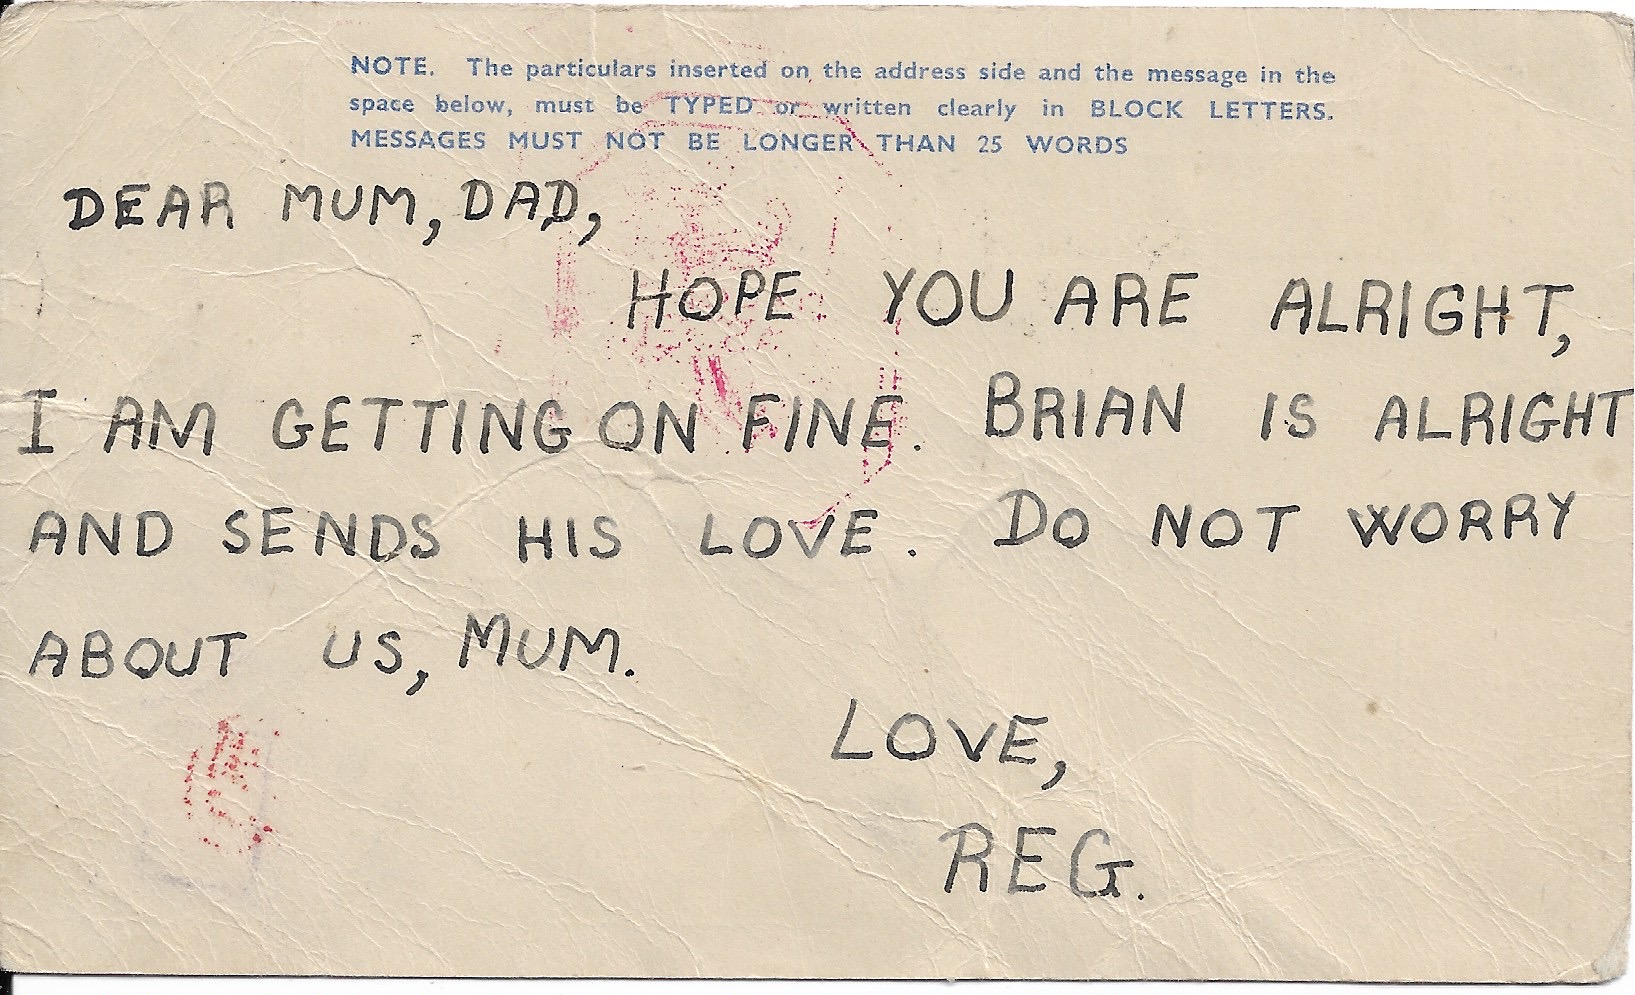 NOTE. The particulars inserted on the address side and the message in the
space below, must be TYPED or written clearly in BLOCK LETTERS.
MESSAGES MUST NOT BE LONGER THAN 25 WORDS
DEAR MUM, DAD,
HOPE YOU ARE ALRIGHT,
I AM GETTING ON FINE. BRIAN IS ALRIGHT
AND SENDS HIS LOVE. DO NOT WORRY
ABOUT US, MUM.
LOVE,
REG.